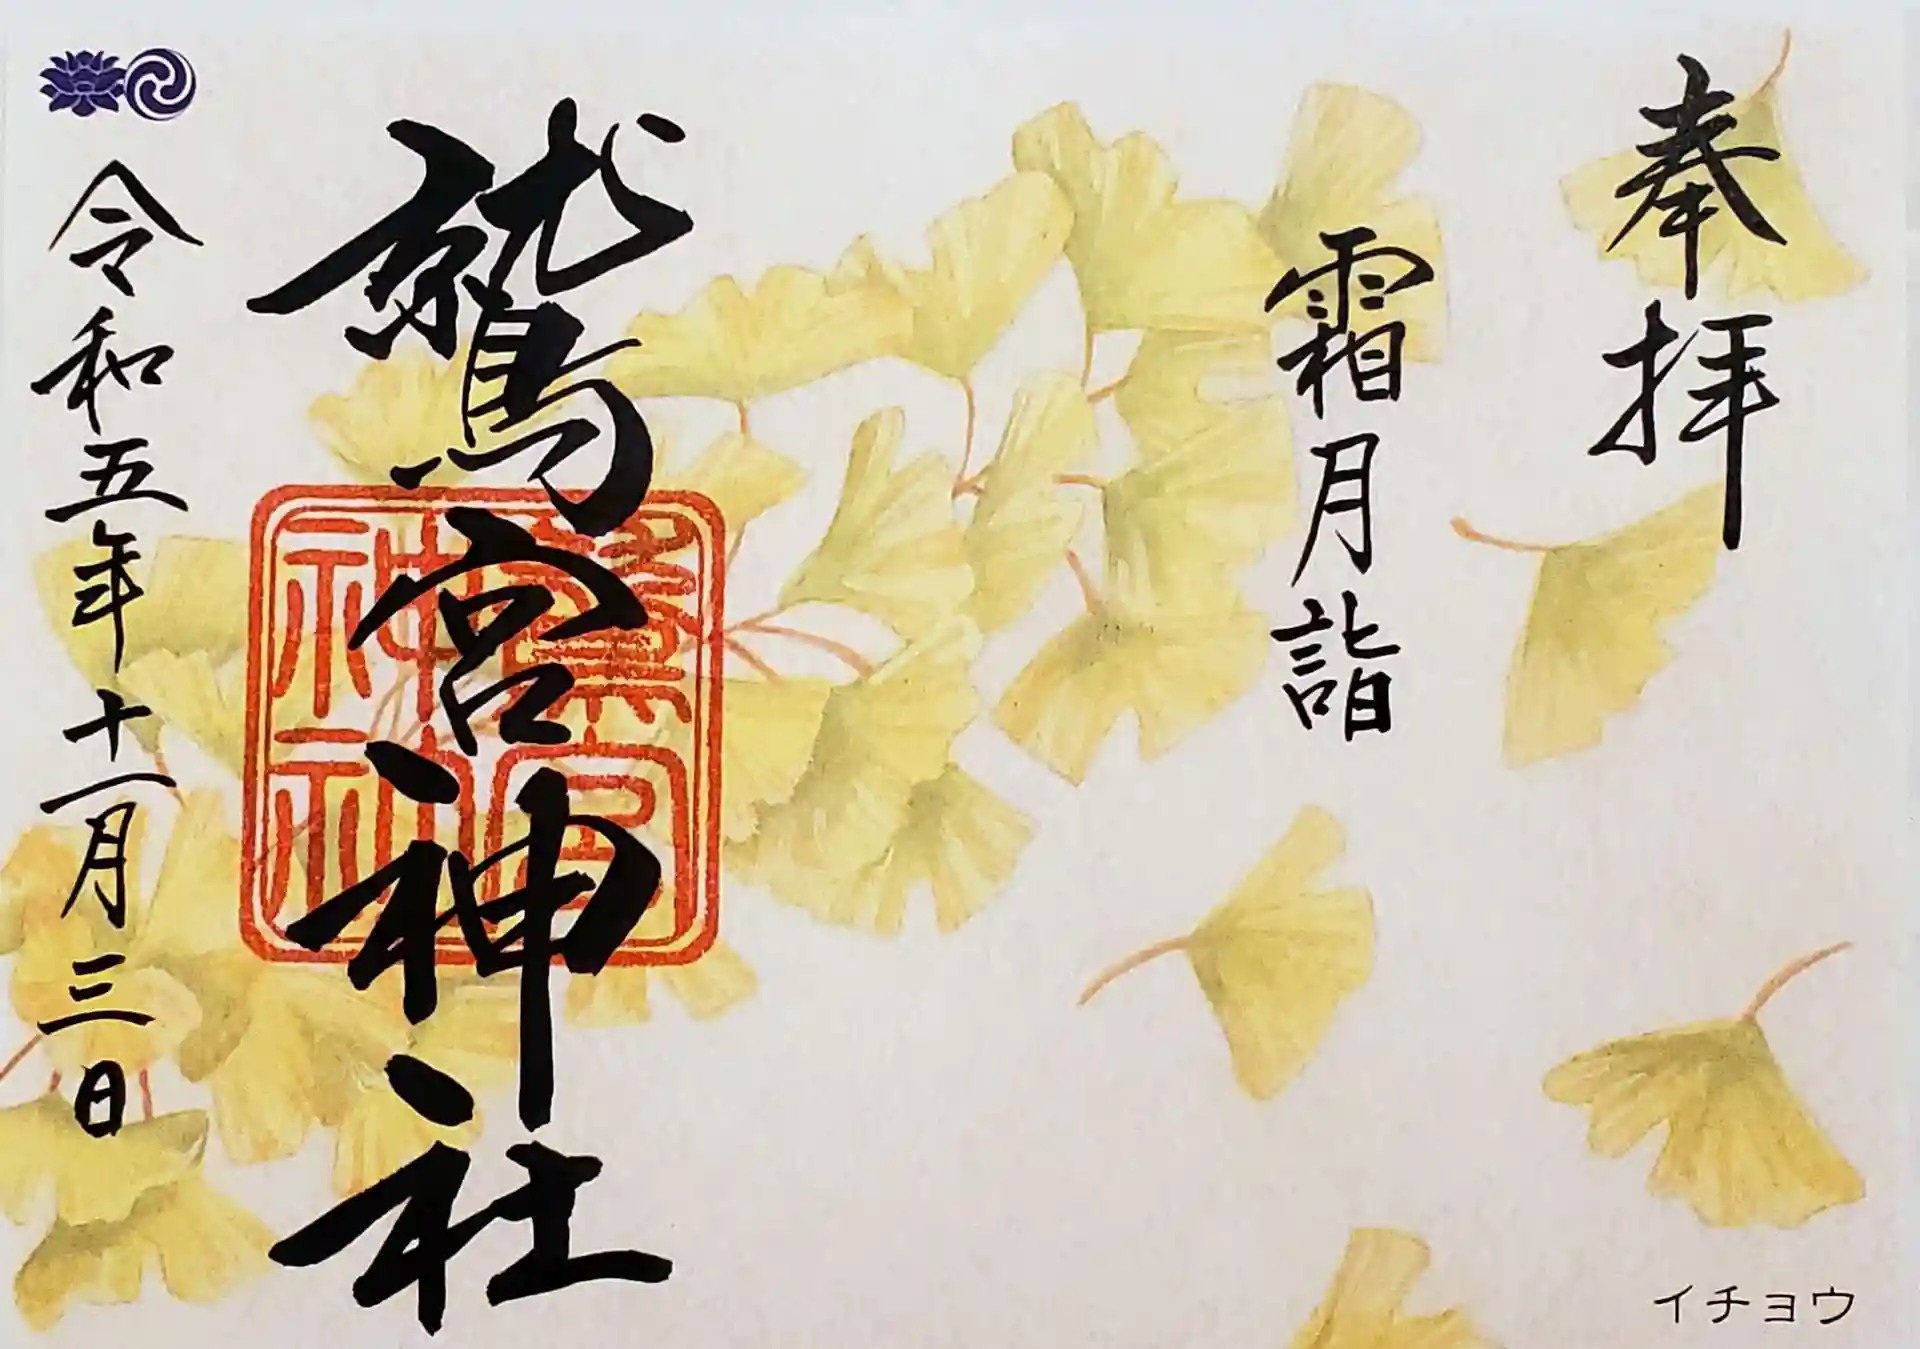 奉拝
霜月詣
鷲宮神社
鷲宮
神社
令和五年十一月三日
イチョウ